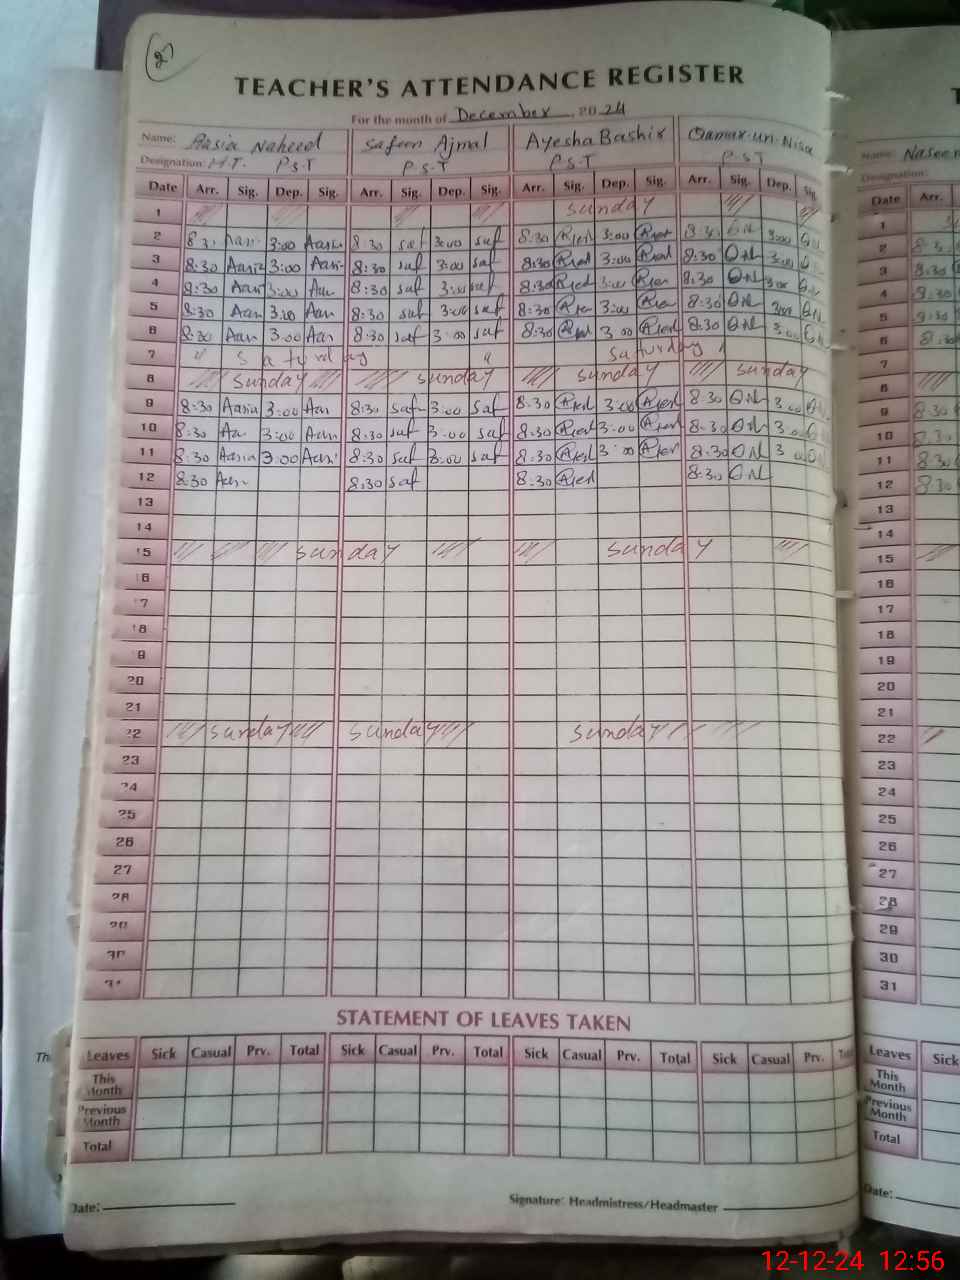 27
TEACHER'S ATTENDANCE REGISTER
For the month of December, 2024
Name: Aasia Naheed Safeen Ajmal Ayesha Bashir Qamar-un-Nisa Name: Naseem
Designation: H.T. P.S.T P.S.T P.S.T P.S.T Designation:
Date Arr. Sig. Dep. Sig. Arr. Sig. Dep. Sig. Arr. Sig. Dep. Sig. Arr. Sig. Dep. Sig. Date Arr.
1 Sunday 1
2 8:30 Aasia 3:00 Aasia 8:30 saf 3:00 saf 8:30 3:00 8:30 QN 3:00 QN 2 8:30
3 8:30 Aasia 3:00 Aasia 8:30 saf 3:00 saf 8:30 3:00 8:30 QN 3:00 3 8:30
4 8:30 Aasi 3:00 Aan 8:30 saf 3:00 saf 8:30 3:00 8:30 QN 3:00 QN 4 8:30
5 8:30 Aan 3:00 Aan 8:30 saf 3:00 saf 8:30 3:00 8:30 QN 3:00 QN 5 8:30
6 8:30 Aan 3:00 Aan 8:30 saf 3:00 saf 8:30 3:00 8:30 QN 3:00 QN 6 8:30
7 " Saturday " Saturday 7
8 Sunday Sunday Sunday Sunday 8
9 8:30 Aasia 3:00 Aan 8:30 saf 3:00 saf 8:30 3:00 8:30 QN 3:00 QN 9 8:30
10 8:30 Aa 3:00 Aan 8:30 saf 3:00 saf 8:30 3:00 8:30 QN 3:00 QN 10 8:30
11 8:30 Aasia 3:00 Aasi 8:30 saf 3:00 saf 8:30 3:00 8:30 QN 3:00 QN 11 8:30
12 8:30 Aan 8:30 saf 8:30 8:30 QN 12 8:30
13 13
14 14
15 Sunday Sunday 15
16 16
17 17
18 18
19 19
20 20
21 21
22 Sunday Sunday Sunday 22
23 23
24 24
25 25
26 26
27 27
28 28
29 29
30 30
31 31
STATEMENT OF LEAVES TAKEN
Leaves Sick Casual Prv. Total Sick Casual Prv. Total Sick Casual Prv. Total Sick Casual Prv. Total Leaves Sick
This Month This Month
Previous Month Previous Month
Total Total
Date: Signature: Headmistress/Headmaster Date:
12-12-24 12:56